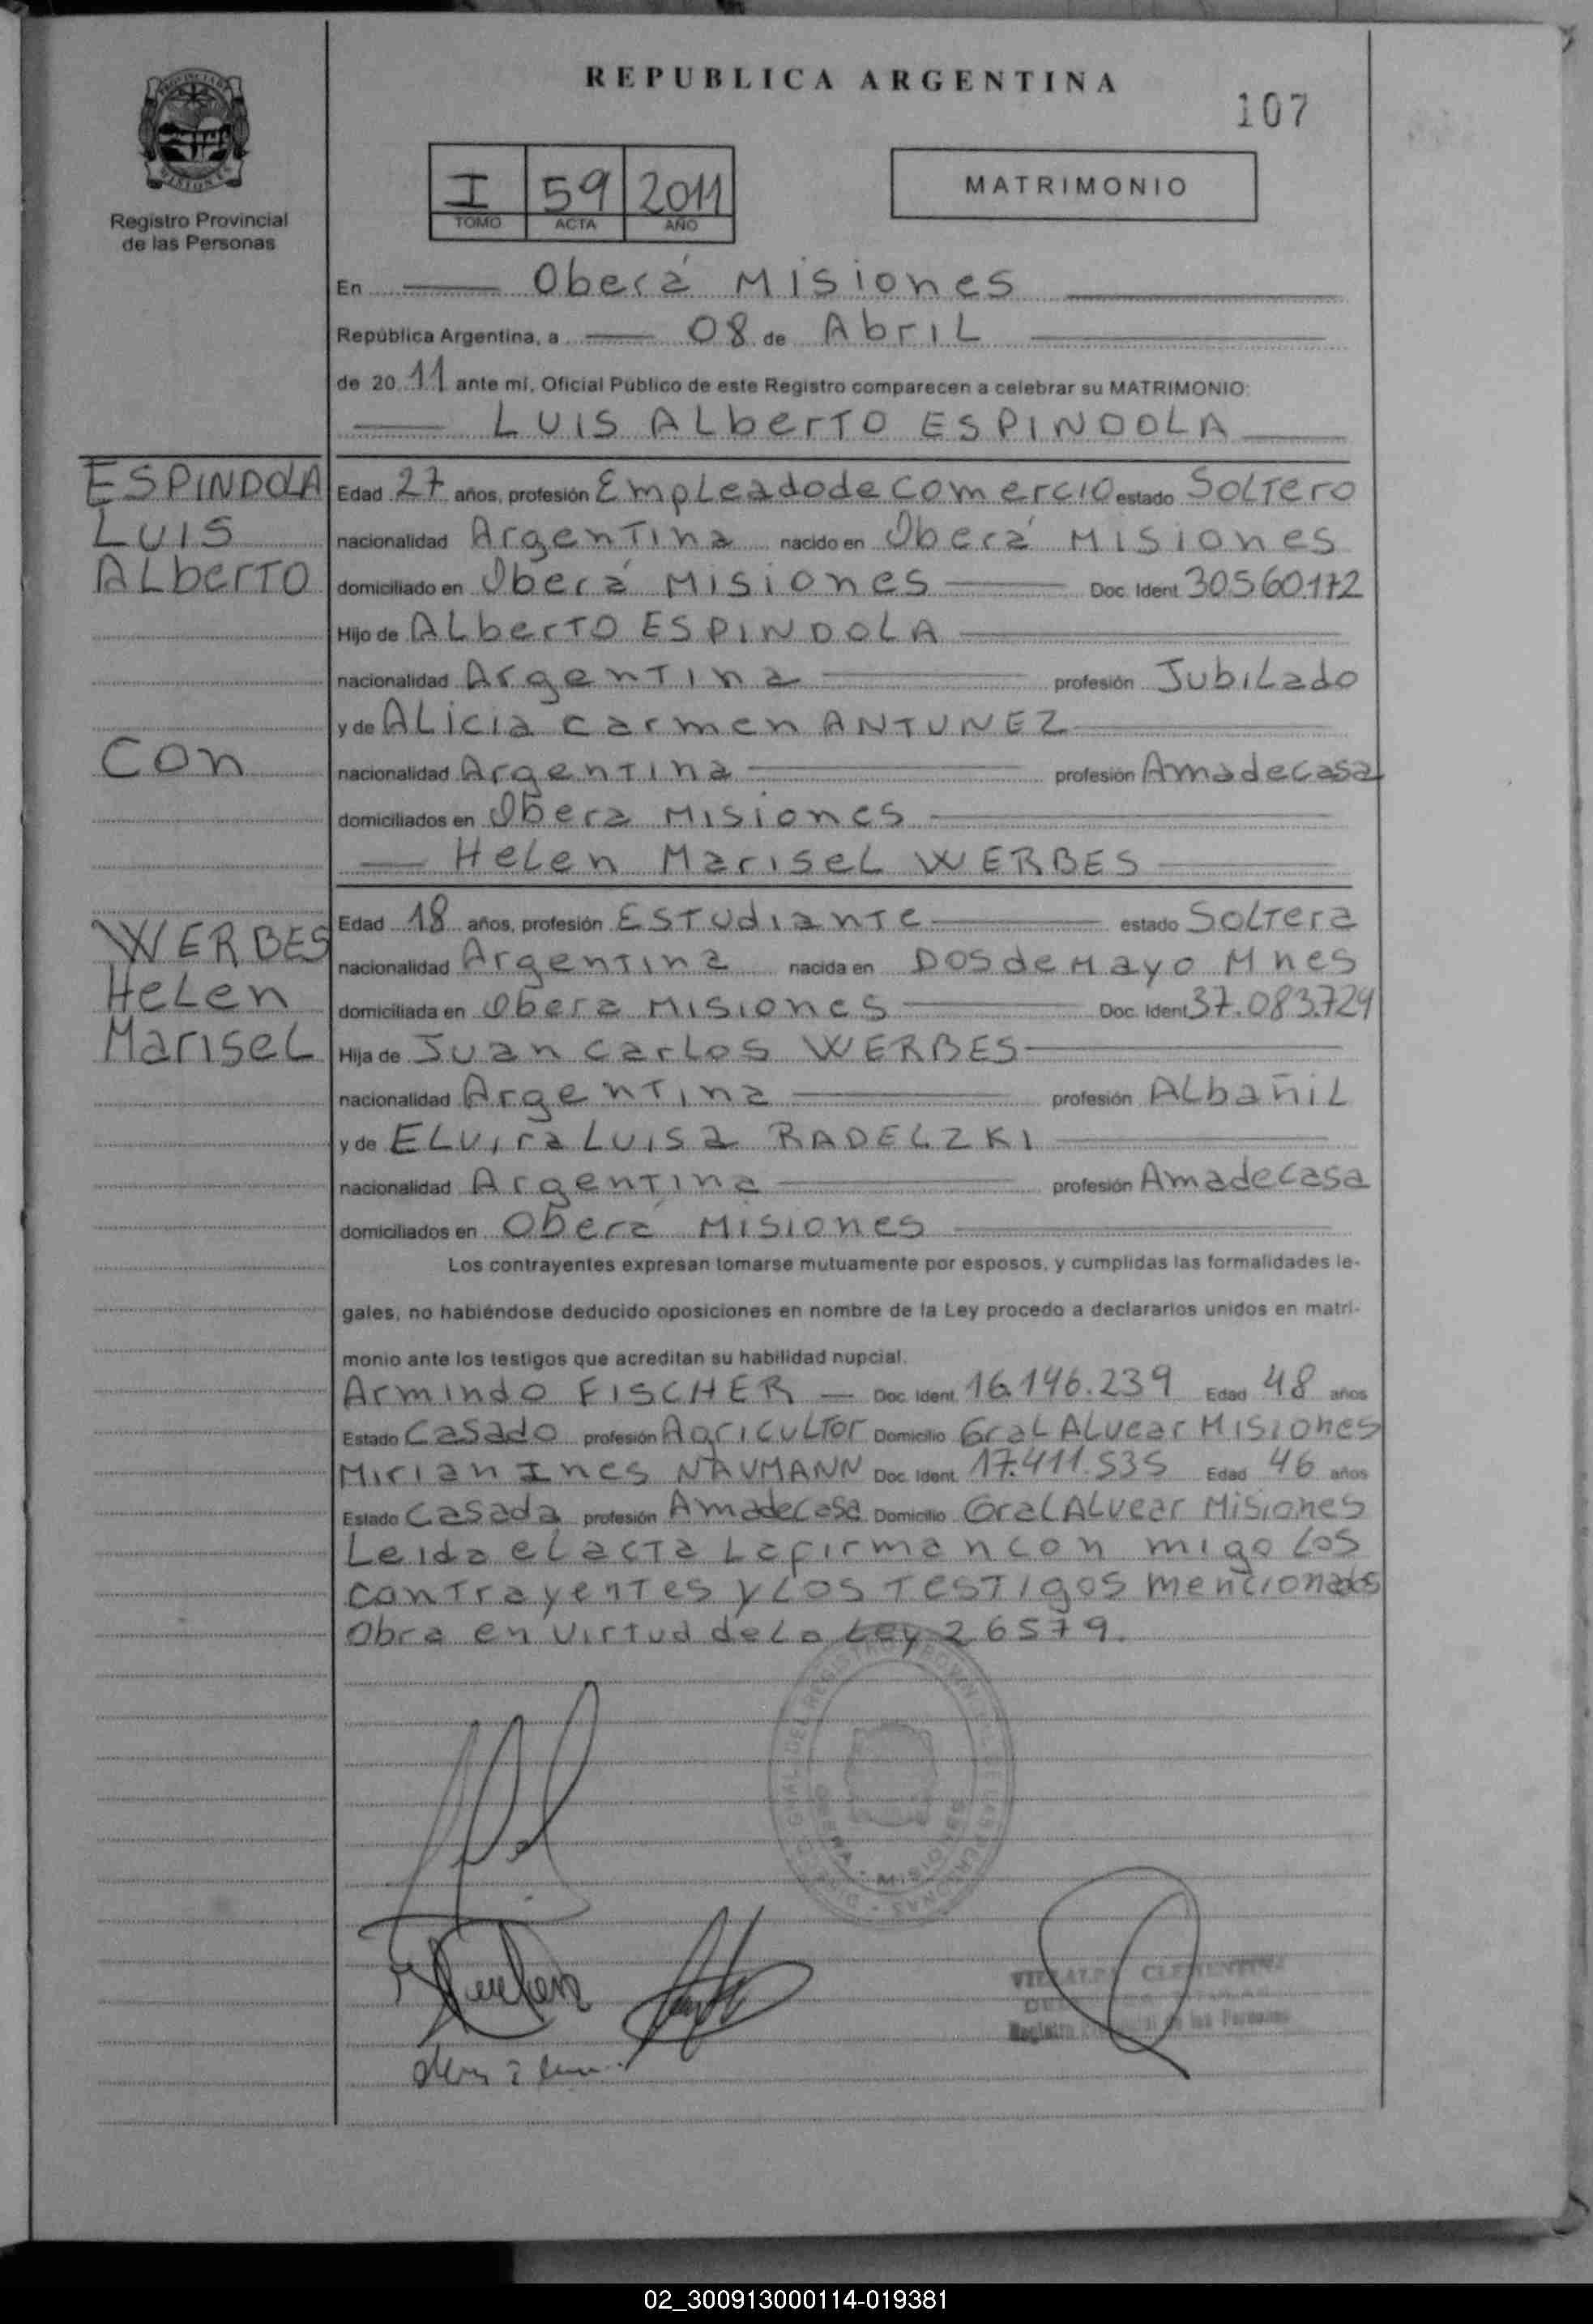 REPUBLICA ARGENTINA
107
Registro Provincial
de las Personas
I 59 2011
TOMO ACTA AÑO
MATRIMONIO
En Oberá Misiones
República Argentina, a 08 de Abril
de 20 11 ante mí, Oficial Público de este Registro comparecen a celebrar su MATRIMONIO:
Luis Alberto ESPINDOLA
ESPINDOLA
Luis
Alberto
Edad 27 años, profesión Empleado de comercio estado Soltero
nacionalidad Argentina nacido en Oberá Misiones
domiciliado en Oberá Misiones Doc. Ident. 30.560.172
Hijo de Alberto ESPINDOLA
nacionalidad Argentina profesión Jubilado
y de Alicia Carmen ANTUNEZ
con
nacionalidad Argentina profesión Ama de casa
domiciliados en Obera Misiones
Helen Marisel WERBES
WERBES
Helen
Marisel
Edad 18 años, profesión Estudiante estado Soltera
nacionalidad Argentina nacida en Dos de Mayo Mnes
domiciliada en Obera Misiones Doc. Ident. 37.083.724
Hija de Juan Carlos WERBES
nacionalidad Argentina profesión Albañil
y de Elvira Luisa RADECZKI
nacionalidad Argentina profesión Ama de casa
domiciliados en Oberá Misiones
Los contrayentes expresan tomarse mutuamente por esposos, y cumplidas las formalidades le-
gales, no habiéndose deducido oposiciones en nombre de la Ley procedo a declararlos unidos en matri-
monio ante los testigos que acreditan su habilidad nupcial.
Armindo FISCHER Doc. Ident. 16.146.239 Edad 48 años
Estado Casado profesión Agricultor Domicilio Gral Alvear Misiones
Mirian Ines NAUMANN Doc. Ident. 17.411.535 Edad 46 años
Estado Casada profesión Ama de casa Domicilio Gral Alvear Misiones
Leida el acta la firman con migo los
contrayentes y los testigos mencionados
Obra en virtud de la Ley 26579.
02_300913000114-019381